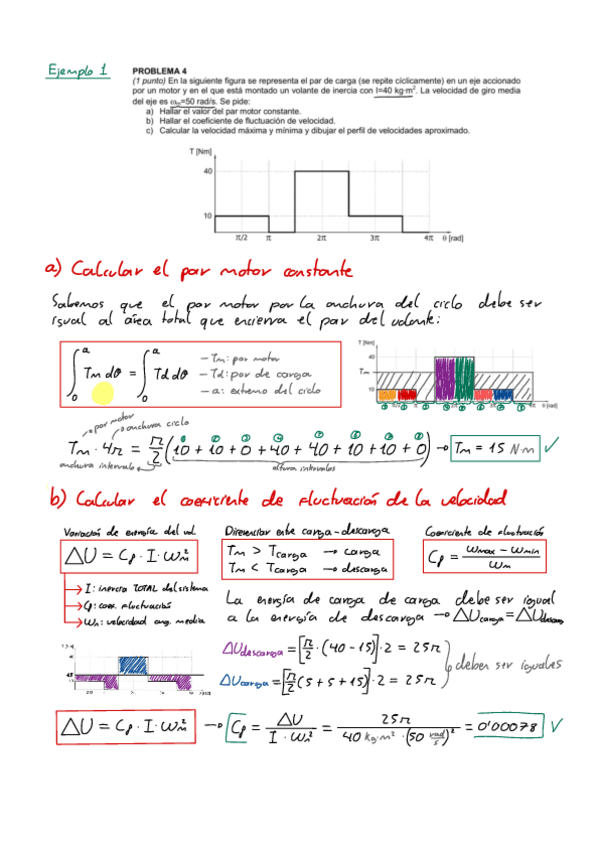 Ejemplo 1
PROBLEMA 4
(1 punto) En la siguiente figura se representa el par de carga (se repite cíclicamente) en un eje accionado
por un motor y en el que está montado un volante de inercia con I=40 kg·m². La velocidad de giro media
del eje es ωₘ=50 rad/s. Se pide:
a) Hallar el valor del par motor constante.
b) Hallar el coeficiente de fluctuación de velocidad.
c) Calcular la velocidad máxima y mínima y dibujar el perfil de velocidades aproximado.
T [Nm]
40
10
π/2 π 2π 3π 4π θ [rad]
a) Calcular el par motor constante
Sabemos que el par motor por la anchura del ciclo debe ser
igual al área total que encierra el par del volante:
∫₀ᵃ Tm dθ = ∫₀ᵃ Td dθ
– Tm: par motor
– Td: par de carga
– a: extremo del ciclo
T [Nm]
40
Tm
10
θ [rad]
par motor
anchura ciclo
Tm · 4π = π/2 (10 + 10 + 0 + 40 + 40 + 10 + 10 + 0) → Tm = 15 N·m ✓
anchura intervalo
altura intervalos
b) Calcular el coeficiente de fluctuación de la velocidad
Variación de energía del vol.
ΔU = Cf · I · ωm²
→ I: inercia TOTAL del sistema
→ Cf: coef. fluctuación
→ ωm: velocidad ang. media
Diferenciar entre carga-descarga
Tm > Tcarga → carga
Tm < Tcarga → descarga
Coeficiente de fluctuación
Cf = (ωmax – ωmin) / ωm
La energía de carga de carga debe ser igual
a la energía de descarga → ΔUcarga = ΔUdescarg
ΔUdescarga = [π/2 · (40 - 15)] · 2 = 25π
ΔUcarga = [π/2 (5 + 5 + 15)] · 2 = 25π
deben ser iguales
ΔU = Cf · I · ωm² → Cf = ΔU / (I · ωm²) = 25π / (40 kg·m² · (50 rad/s)²) = 0'00078 ✓